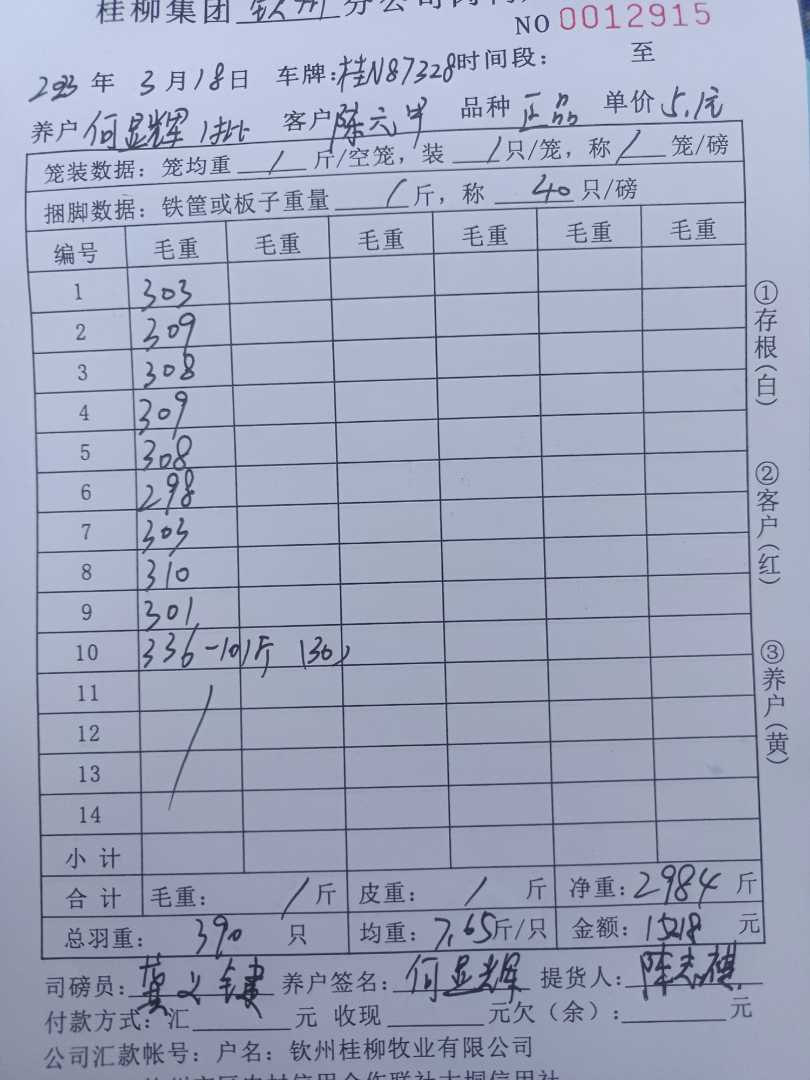 桂柳集团 钦州 分公司
NO 0012915
2023 年 3 月 18 日 车牌:桂N87328 时间段: 至
养户 何显辉 1批 客户 陈六甲 品种 正品 单价 5.1元
笼装数据: 笼均重 / 斤/空笼, 装 / 只/笼, 称 / 笼/磅
捆脚数据: 铁筐或板子重量 / 斤, 称 40 只/磅
编号 毛重 毛重 毛重 毛重 毛重 毛重
1 303
2 309
3 308
4 309
5 308
6 298
7 303
8 310
9 301
10 336-101斤 (30)
11
12
13
14
小 计
合 计 毛重: / 斤 皮重: / 斤 净重:2984 斤
总羽重: 390 只 均重: 7.65 斤/只 金额: 15218 元
司磅员: 黄义健 养户签名: 何显辉 提货人: 陈志祺
付款方式: 汇 元 收现 元欠(余): 元
公司汇款帐号: 户名: 钦州桂柳牧业有限公司
①存根(白)
②客户(红)
③养户(黄)